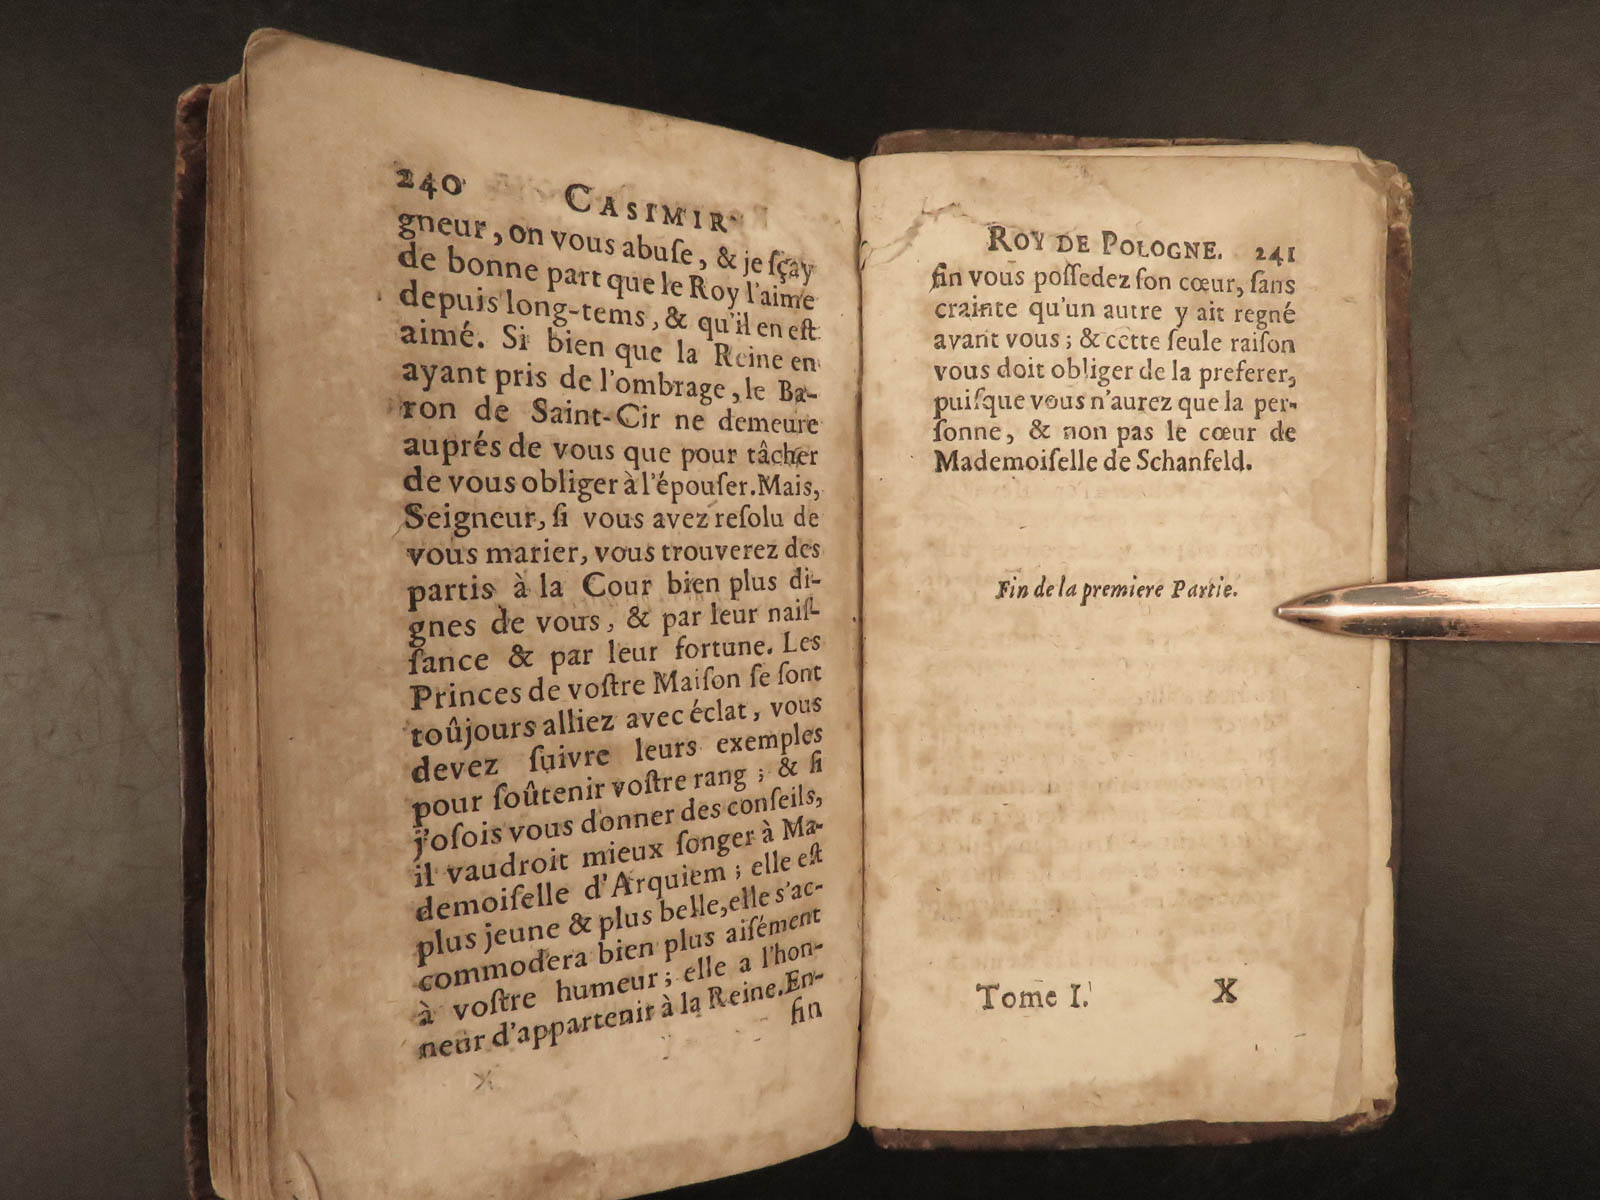 240 CASIMIR
gneur, on vous abuſe, & je ſçay
de bonne part que le Roy l'aime
depuis long-tems, & qu'il en eſt
aimé. Si bien que la Reine en
ayant pris de l'ombrage, le Ba-
ron de Saint-Cir ne demeure
auprés de vous que pour tâcher
de vous obliger à l'épouſer. Mais,
Seigneur, ſi vous avez reſolu de
vous marier, vous trouverez des
partis à la Cour bien plus di-
gnes de vous, & par leur naiſ-
ſance & par leur fortune. Les
Princes de voſtre Maiſon ſe ſont
toûjours alliez avec éclat, vous
devez ſuivre leurs exemples
pour ſoûtenir voſtre rang ; & ſi
j'oſois vous donner des conſeils,
il vaudroit mieux ſonger à Ma-
demoiſelle d'Arquiem ; elle eſt
plus jeune & plus belle, elle s'ac-
commodera bien plus aiſément
à voſtre humeur ; elle a l'hon-
neur d'appartenir à la Reine. En-
fin
ROY DE POLOGNE. 241
fin vous poſſedez ſon cœur, ſans
crainte qu'un autre y ait regné
avant vous ; & cette ſeule raiſon
vous doit obliger de la preferer,
puiſque vous n'aurez que la per-
ſonne, & non pas le cœur de
Mademoiſelle de Schanfeld.
Fin de la premiere Partie.
Tome I. X